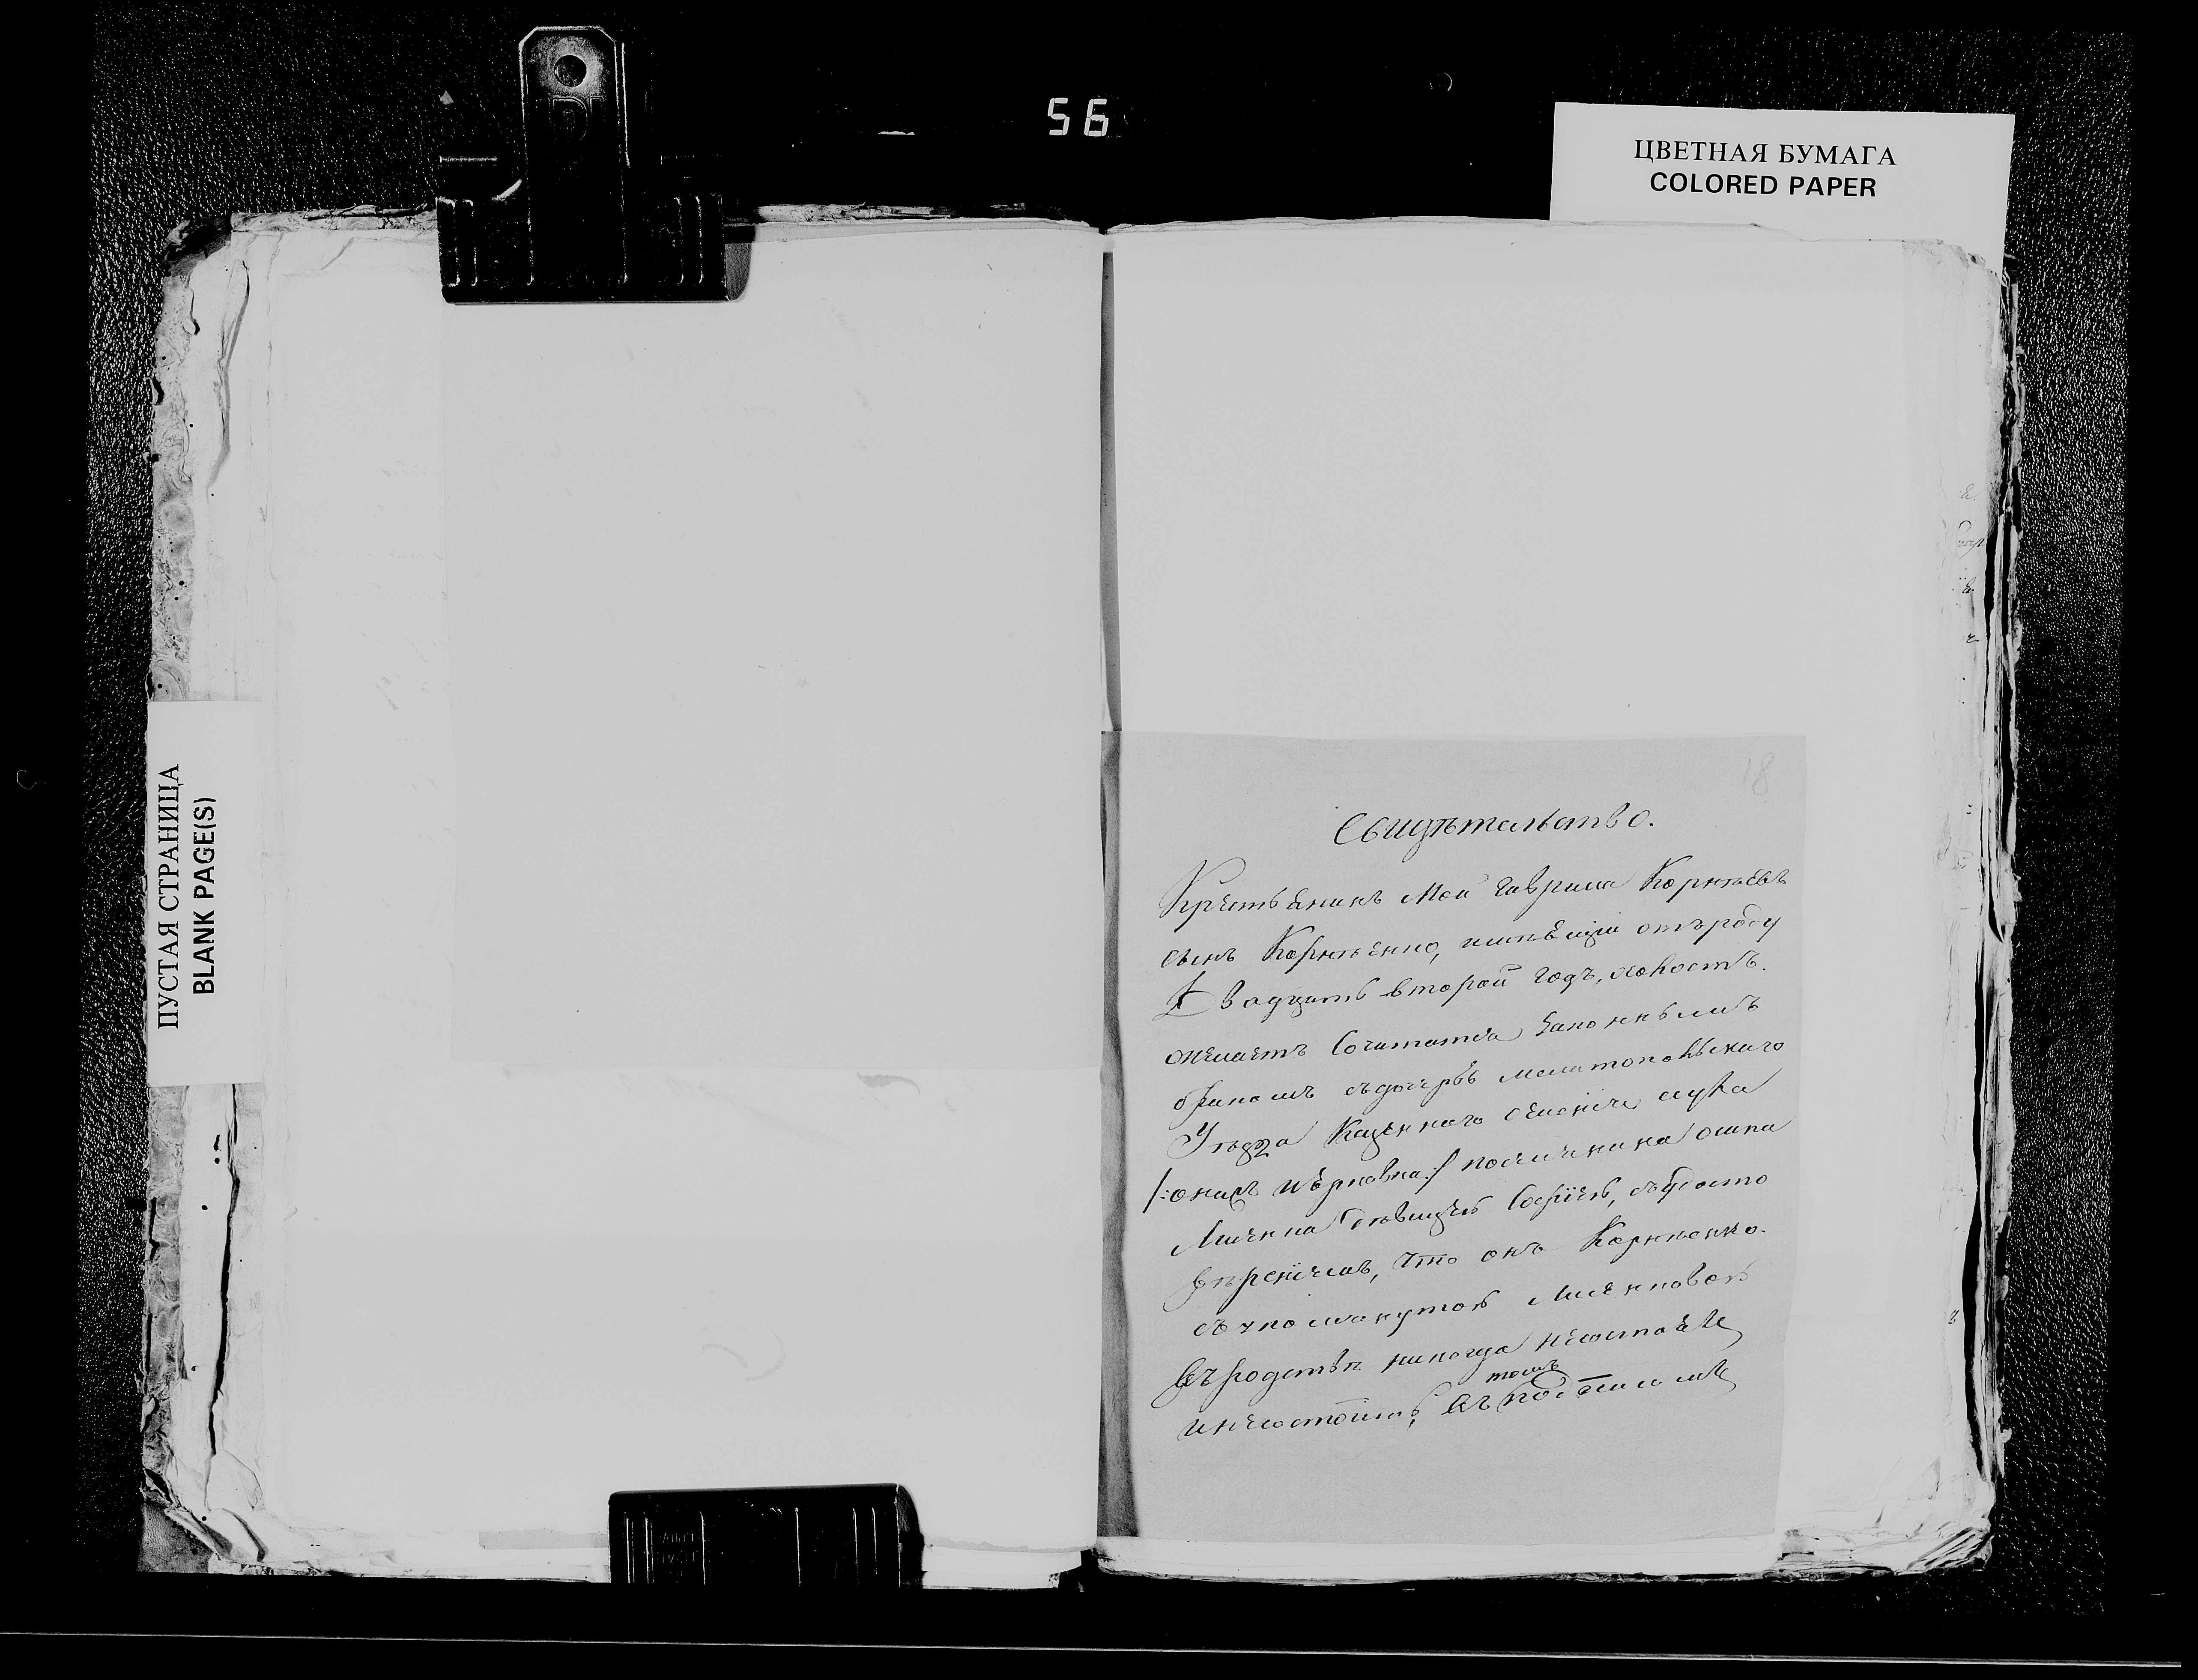 56
ЦВЕТНАЯ БУМАГА
COLORED PAPER
ПУСТАЯ СТРАНИЦА
BLANK PAGE(S)
18
Свидѣтельство.
Крестьянинъ мой Гаврила Корнѣевъ
сынъ Корнѣенко, имѣющій отъ роду
Двадцать второй годъ, холостъ.
желаетъ Сочитатся Законнымъ
бракомъ съ дочерью мелитопольскаго
Уѣзда Казеннаго селенія
поселенина
Софіею, съ удосто
вѣреніемъ, что онъ Корнѣенко.
съ упомянутой
въ родствѣ никогда несостоялъ
и несостоитъ, въ томъ подписомъ